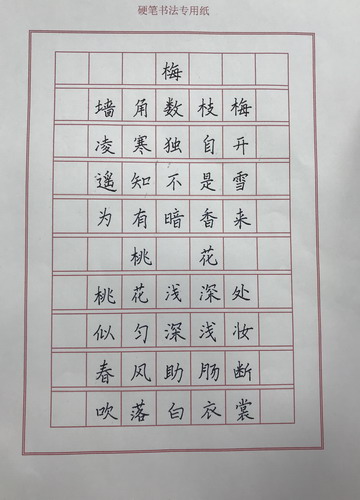 硬笔书法专用纸
梅
墙角数枝梅
凌寒独自开
遥知不是雪
为有暗香来
桃花
桃花浅深处
似匀深浅妆
春风助肠断
吹落白衣裳